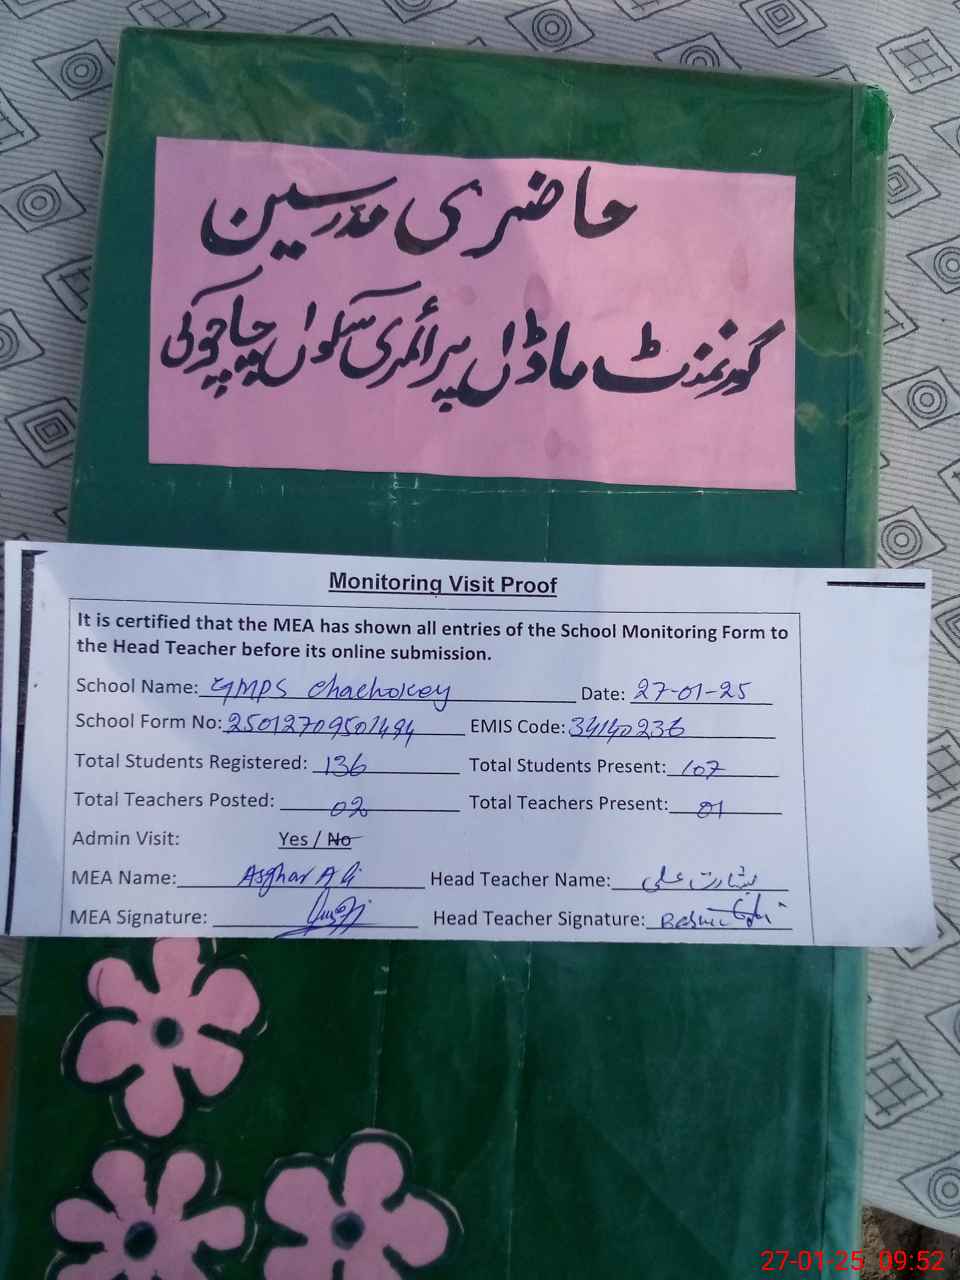 حاضری مدرسین
گورنمنٹ ماڈل پرائمری سکول چاچوکی
Monitoring Visit Proof
It is certified that the MEA has shown all entries of the School Monitoring Form to
the Head Teacher before its online submission.
School Name: GMPS Chachokey Date: 27-01-25
School Form No: 25012709501494 EMIS Code: 34140236
Total Students Registered: 136 Total Students Present: 107
Total Teachers Posted: 02 Total Teachers Present: 01
Admin Visit: Yes / No
MEA Name: Asghar Ali Head Teacher Name: بشارت علی
MEA Signature: Head Teacher Signature:
27-01-25 09:52